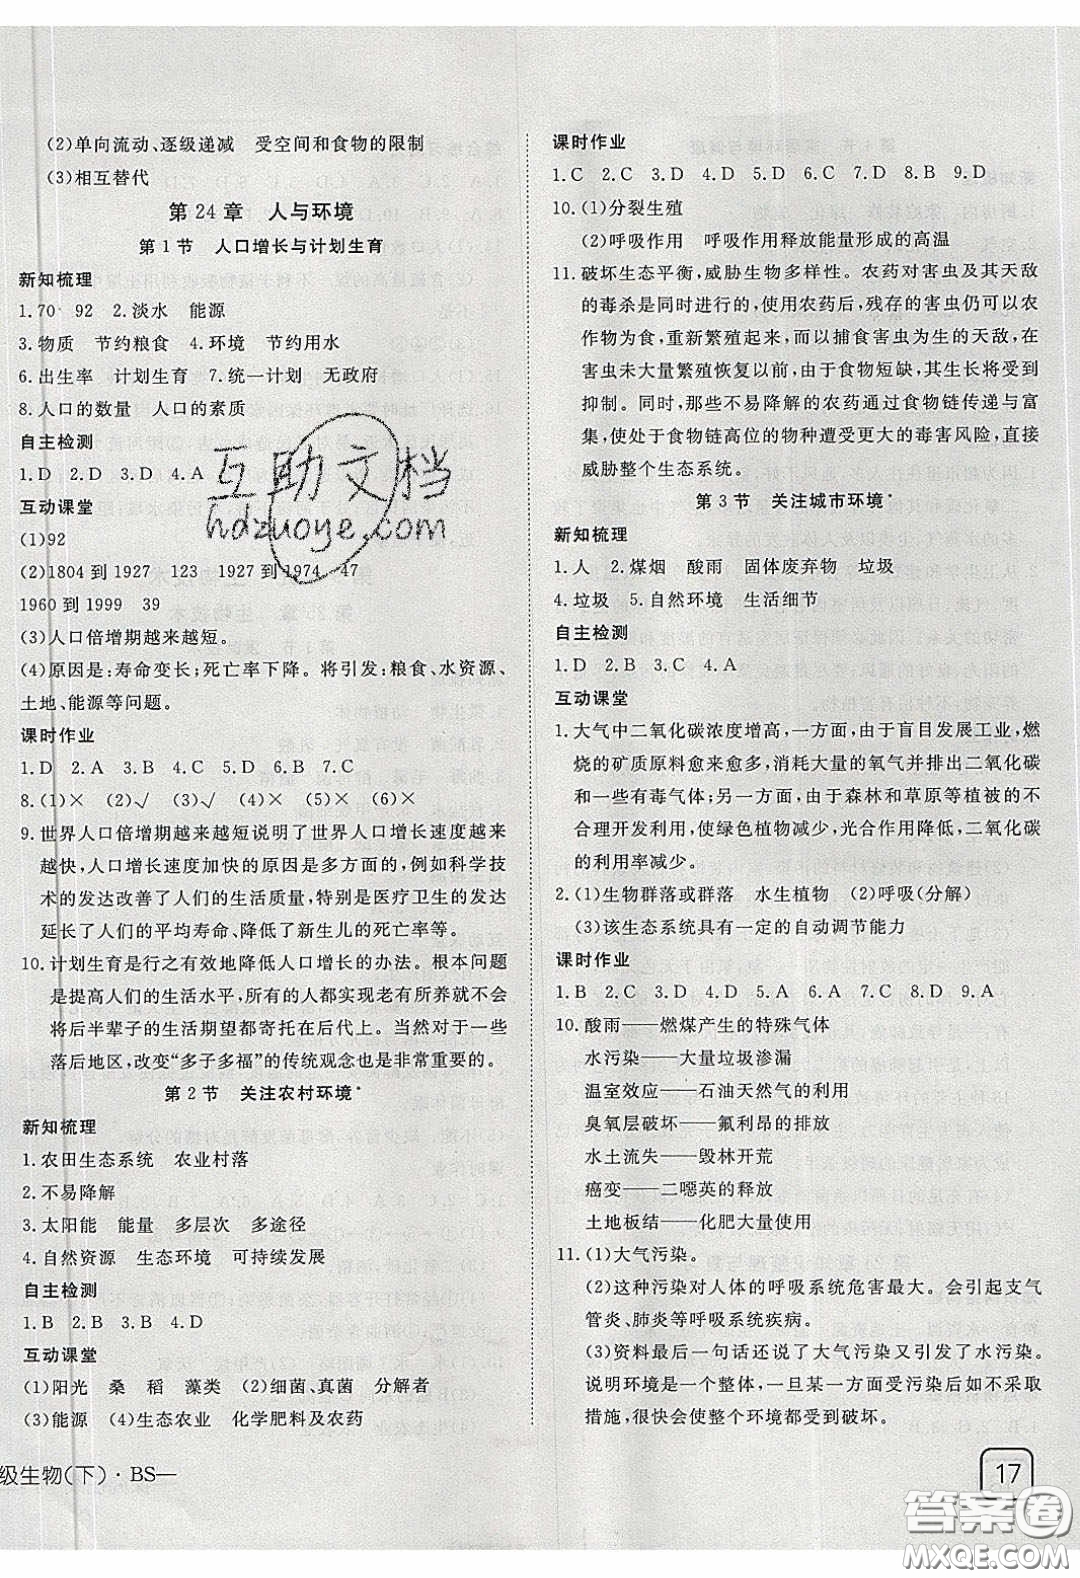 (2)单向流动、逐级递减　受空间和食物的限制
(3)相互替代
第 24 章　人与环境
第 1 节　人口增长与计划生育
新知梳理
1.70　92　2.淡水　能源
3.物质　节约粮食　4.环境　节约用水
6.出生率　计划生育　7.统一计划　无政府
8.人口的数量　人口的素质
自主检测
1.D　2.D　3.D　4.A
互动课堂
(1)92
(2)1804 到 1927　123　1927 到 1974　47
1960 到 1999　39
(3)人口倍增期越来越短。
(4)原因是:寿命变长;死亡率下降。将引发:粮食、水资源、
土地、能源等问题。
课时作业
1.D　2.A　3.B　4.C　5.D　6.B　7.C
8.(1)×　(2)√　(3)√　(4)×　(5)×　(6)×
9.世界人口倍增期越来越短说明了世界人口增长速度越来
越快,人口增长速度加快的原因是多方面的,例如科学技
术的发达改善了人们的生活质量,特别是医疗卫生的发达
延长了人们的平均寿命、降低了新生儿的死亡率等。
10.计划生育是行之有效地降低人口增长的办法。根本问题
是提高人们的生活水平,所有的人都实现老有所养就不会
将后半辈子的生活期望都寄托在后代上。当然对于一些
落后地区,改变“多子多福”的传统观念也是非常重要的。
第 2 节　关注农村环境*
新知梳理
1.农田生态系统　农业村落
2.不易降解
3.太阳能　能量　多层次　多途径
4.自然资源　生态环境　可持续发展
自主检测
1.B　2.B　3.B　4.D
互动课堂
(1)阳光　桑　稻　藻类　(2)细菌、真菌　分解者
(3)能源　(4)生态农业　化学肥料及农药
级生物(下)·BS—
课时作业
1.C　2.C　3.D　4.D　5.C　6.D　7.D　8.B　9.D
10.(1)分裂生殖
(2)呼吸作用　呼吸作用释放能量形成的高温
11.破坏生态平衡,威胁生物多样性。农药对害虫及其天敌
的毒杀是同时进行的,使用农药后,残存的害虫仍可以农
作物为食,重新繁殖起来,而以捕食害虫为生的天敌,在
害虫未大量繁殖恢复以前,由于食物短缺,其生长将受到
抑制。同时,那些不易降解的农药通过食物链传递与富
集,使处于食物链高位的物种遭受更大的毒害风险,直接
威胁整个生态系统。
第 3 节　关注城市环境*
新知梳理
1.人　2.煤烟　酸雨　固体废弃物　垃圾
4.垃圾　5.自然环境　生活细节
自主检测
1.D　2.B　3.C　4.D
互动课堂
1.大气中二氧化碳浓度增高,一方面,由于盲目发展工业,燃
烧的矿质原料愈来愈多,消耗大量的氧气并排出二氧化碳
和一些有毒气体;另一方面,由于森林和草原等植被的不
合理开发利用,使绿色植物减少,光合作用降低,二氧化碳
的利用率减少。
2.(1)生物群落或群落　水生植物　(2)呼吸(分解)
(3)该生态系统具有一定的自动调节能力
课时作业
1.B　2.C　3.D　4.D　5.A　6.A　7.D　8.D　9.A
10.酸雨——燃煤产生的特殊气体
水污染——大量垃圾渗漏
温室效应——石油天然气的利用
臭氧层破坏——氟利昂的排放
水土流失——毁林开荒
癌变——二噁英的释放
土地板结——化肥大量使用
11.(1)大气污染。
(2)这种污染对人体的呼吸系统危害最大。会引起支气
管炎、肺炎等呼吸系统疾病。
(3)资料最后一句话还说了大气污染又引发了水污染。
说明环境是一个整体,一旦某一方面受污染后如不采取
措施,很快会使整个环境都受到破坏。
17
互助文档
hdzuoye.com
答案圈
MXQE.COM